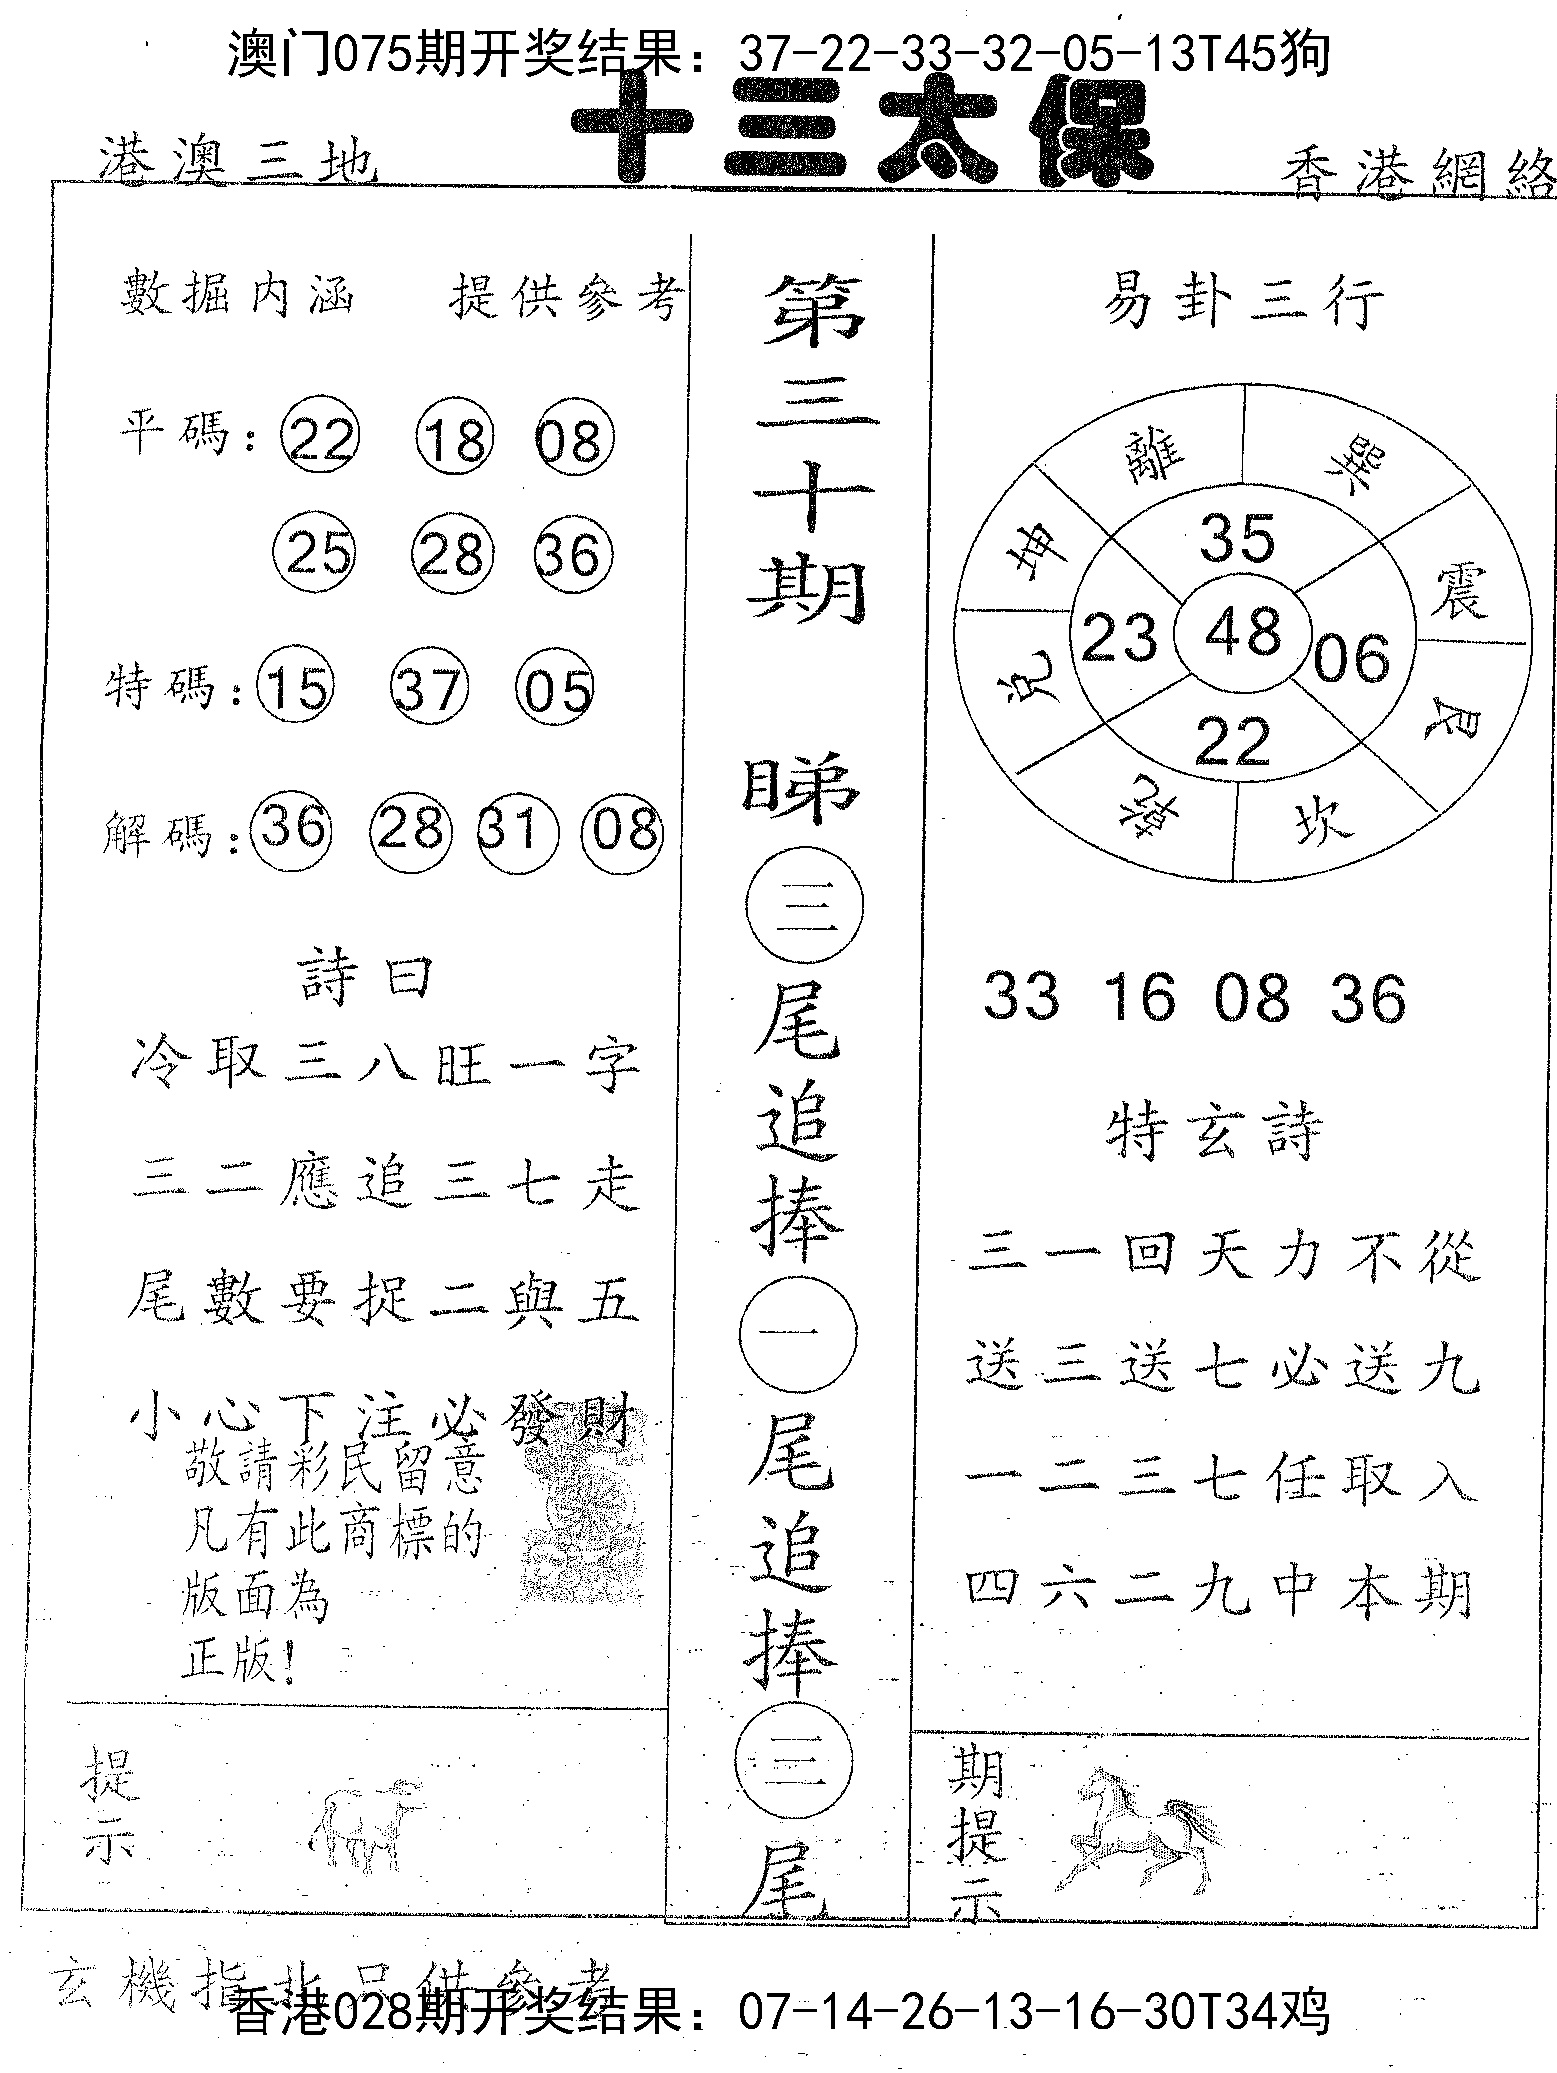 澳门075期开奖结果：37-22-33-32-05-13T45狗
十三太保
港澳三地
香港網絡
數掘内涵 提供參考
平碼：22 18 08
25 28 36
特碼：15 37 05
解碼：36 28 31 08
詩曰
冷取三八旺一字
三二應追三七走
尾數要捉二與五
小心下注必發財
敬請彩民留意
凡有此商標的
版面為
正版！
提示
第三十期
睇㊂尾追捧㊀尾追捧㊂尾
易卦三行
離 巽
坤 震
兌 艮
乾 坎
35
23 48 06
22
33 16 08 36
特玄詩
三一回天力不從
送三送七必送九
一二三七任取入
四六二九中本期
期提示
玄機指北只供參考
香港028期开奖结果：07-14-26-13-16-30T34鸡